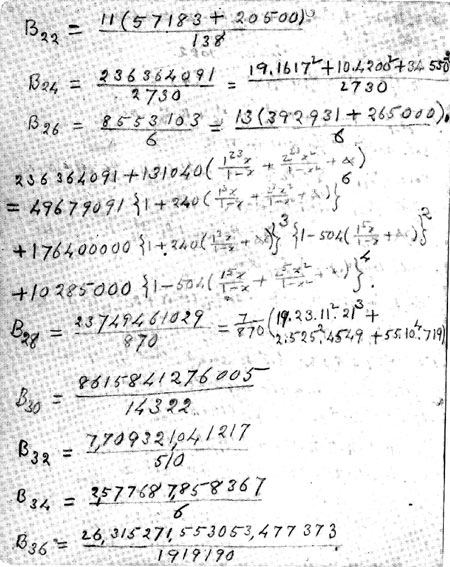 B₂₂ = 11(57183 + 20500) / 138
B₂₄ = 236364091 / 2730 = 19.1617² + 10.4200² + 34.550² / 2730
B₂₆ = 8553103 / 6 = 13(392931 + 265000) / 6.
236364091 + 131040(1²³x / 1-x + 2²³x² / 1-x² + &)
= 49679091 {1 + 240(1³x / 1-x + 2³x² / 1-x² + &)}⁶
+176400000 {1 + 240(1³x / 1-x + &)}³ {1 - 504(1⁵x / 1-x + &)}²
+10285000 {1 - 504(1⁵x / 1-x + 2⁵x² / 1-x² + &)}⁴.
B₂₈ = 23749461029 / 870 = 7 / 870 (19.23.11².21³ + 2.525².4549 + 55.10⁴.719)
B₃₀ = 8615841276005 / 14322
B₃₂ = 7,709321,041217 / 510
B₃₄ = 2,577687,858367 / 6
B₃₆ = 26,315271,553053,477373 / 1919190